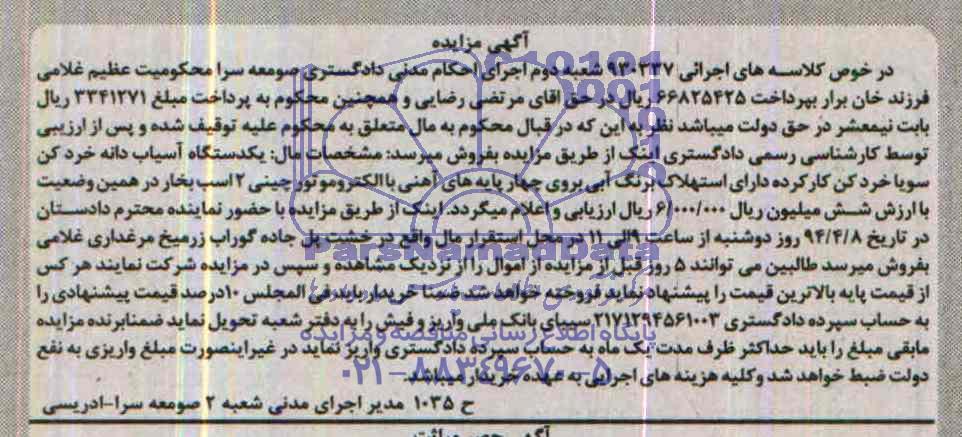 آگهی مزایده
در خوص کلاسه های اجرائی ۹۳۰۳۳۷ شعبه دوم اجرای احکام مدنی دادگستری صومعه سرا محکومیت عظیم غلامی
فرزند خان برار بپرداخت ۶۶۸۲۵۴۲۵ ریال در حق اقای مرتضی رضایی و همچنین محکوم به پرداخت مبلغ ۳۳۴۱۲۷۱ ریال
بابت نیمعشر در حق دولت میباشد نظر به این که در قبال محکوم به مال متعلق به محکوم علیه توقیف شده و پس از ارزیبی
توسط کارشناسی رسمی دادگستری اینک از طریق مزایده بفروش میرسد: مشخصات مال: یکدستگاه آسیاب دانه خرد کن
سویا خرد کن کارکرده دارای استهلاک برنگ آبی بروی چهار پایه های آهنی باالکتروموتور چینی ۲ اسب بخار در همین وضعیت
با ارزش شش میلیون ریال ۶/۰۰۰/۰۰۰ ریال ارزیابی و اعلام میگردد. اینک از طریق مزایده با حضور نماینده محترم دادستان
در تاریخ ۹۴/۴/۸ روز دوشنبه از ساعت ۹الی ۱۱ در محل استقرار مال واقع در خشت پل جاده گوراب زرمیخ مرغداری غلامی
بفروش میرسد طالبین می توانند ۵ روز قبل از مزایده از اموال را از نزدیک مشاهده و سپس در مزایده شرکت نمایند هر کس
از قیمت پایه بالاترین قیمت را پیشنهاد نماید فروخته خواهد شد ضمنا خریدار باید فی المجلس ۱۰درصد قیمت پیشنهادی را
به حساب سپرده دادگستری ۲۱۷۱۲۹۴۵۶۱۰۰۳ سیبای بانک ملی واریز و فیش را به دفتر شعبه تحویل نماید ضمنابرنده مزایده
مابقی مبلغ را باید حداکثر ظرف مدت یک ماه به حساب سپرده دادگستری واریز نماید در غیراینصورت مبلغ واریزی به نفع
دولت ضبط خواهد شد وکلیه هزینه های اجرایی به عهده خریدار میباشد.
ح ۱۰۳۵ مدیر اجرای مدنی شعبه ۲ صومعه سرا-ادریسی
ParsNamadData
پایگاه اطلاع رسانی مناقصه و مزایده
۰۲۱-۸۸۳۴۹۶۷۰-۵